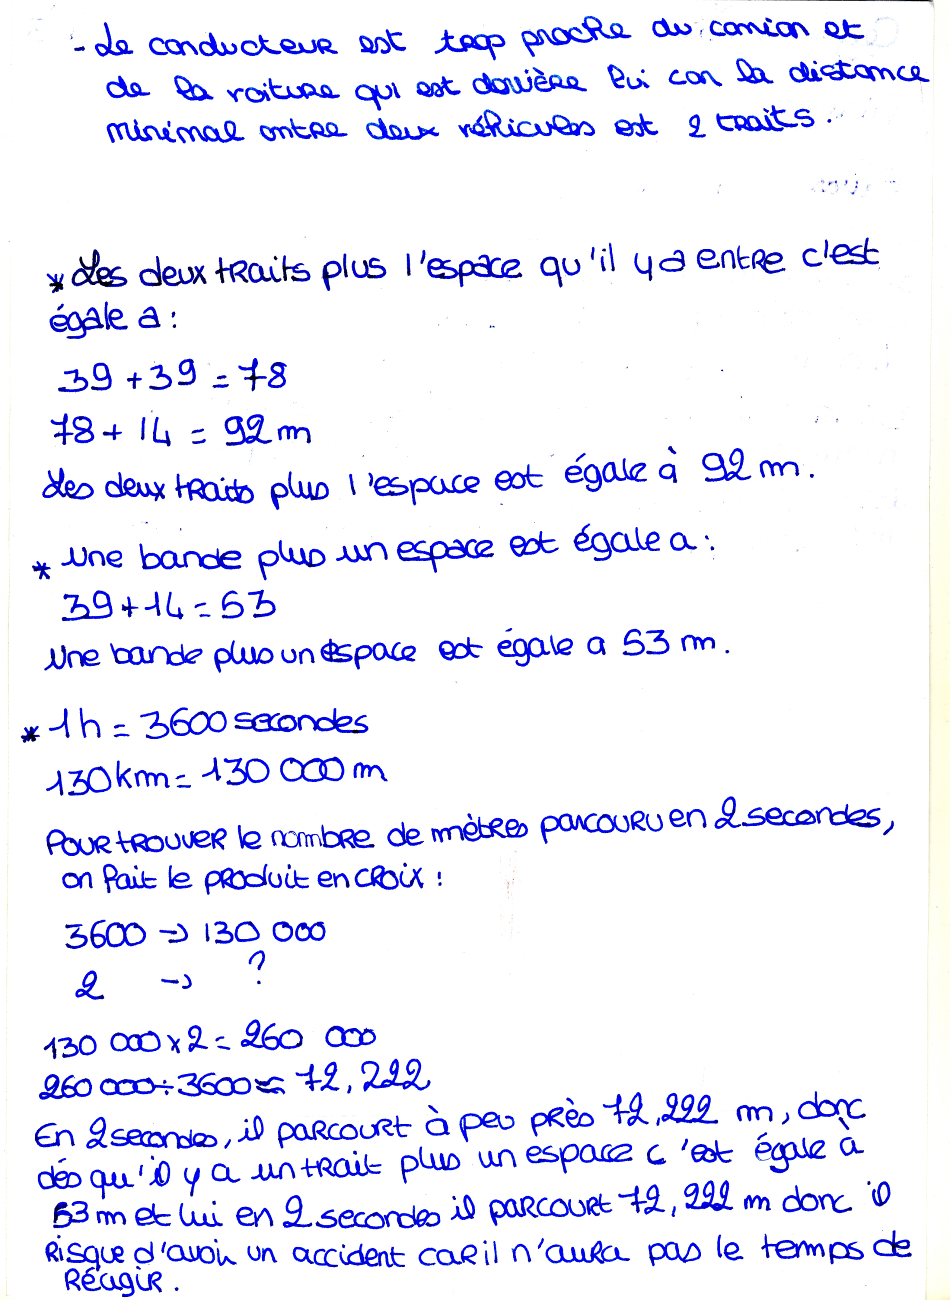 - Le conducteur est trop proche du camion et
de la voiture qui est derrière lui car la distance
minimal entre deux véhicules est 2 traits.
* Les deux traits plus l'espace qu'il y a entre c'est
égale a :
39 + 39 = 78
78 + 14 = 92 m
Les deux traits plus l'espace est égale à 92 m.
* Une bande plus un espace est égale a :
39 + 14 = 53
Une bande plus un espace est égale a 53 m.
* 1 h = 3600 secondes
130 km = 130 000 m
Pour trouver le nombre de mètres parcouru en 2 secondes,
on fait le produit en croix :
3600 → 130 000
2 → ?
130 000 x 2 = 260 000
260 000 ÷ 3600 ≈ 72,222
En 2 secondes, il parcourt à peu près 72,222 m, donc
dés qu'il y a un trait plus un espace c'est égale à
53 m et lui en 2 secondes il parcourt 72,222 m donc il
risque d'avoir un accident car il n'aura pas le temps de
réagir.